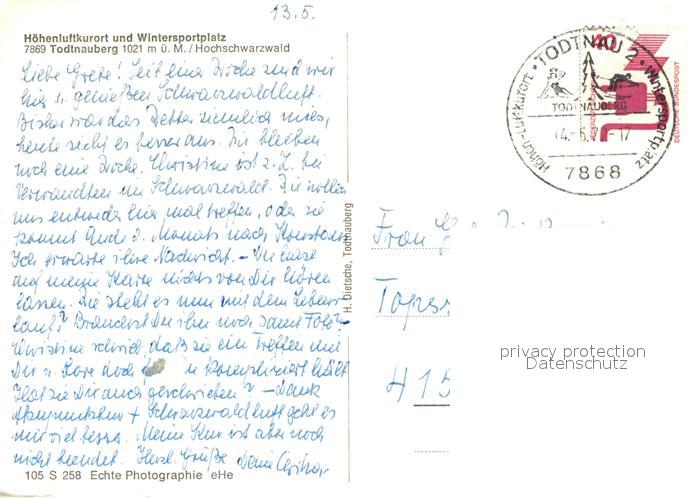 13.5.
Höhenluftkurort und Wintersportplatz
7869 Todtnauberg 1021 m ü. M. / Hochschwarzwald
Liebe Grete! Seit einer Woche sind wir
hier u. genießen Schwarzwaldluft.
Bisher war das Wetter ziemlich mies,
heute sieht es besser aus. Wir bleiben
noch eine Woche. Christine ist z. Z. bei
Verwandten im Schwarzwald. Wir wollen
uns entweder hier mal treffen, oder sie
kommt Ende d. Monats nach Konstanz.
Ich erwarte ihre Nachricht. – Du hast
auf meine Karte nichts von Dir hören
lassen. Wie steht es nun mit dem Lebens-
lauf? Brauchst Du ihn noch samt Foto?
Christine schrieb, daß sie ein Treffen mit
Dir u. Lore doch
Hat sie Dir auch geschrieben? – Dank
Akupunktur + Schwarzwaldluft geht es
mir viel besser. Meine Kur ist aber noch
nicht beendet. Herzl. Grüße Deine
105 S 258 Echte Photographie eHe
H. Dietsche, Todtnauberg
TODTNAU 2
Höhen-Luftkurort · Wintersportplatz
TODTNAUBERG
7868
DEUTSCHE BUNDESPOST
Frau
415
privacy protection
Datenschutz